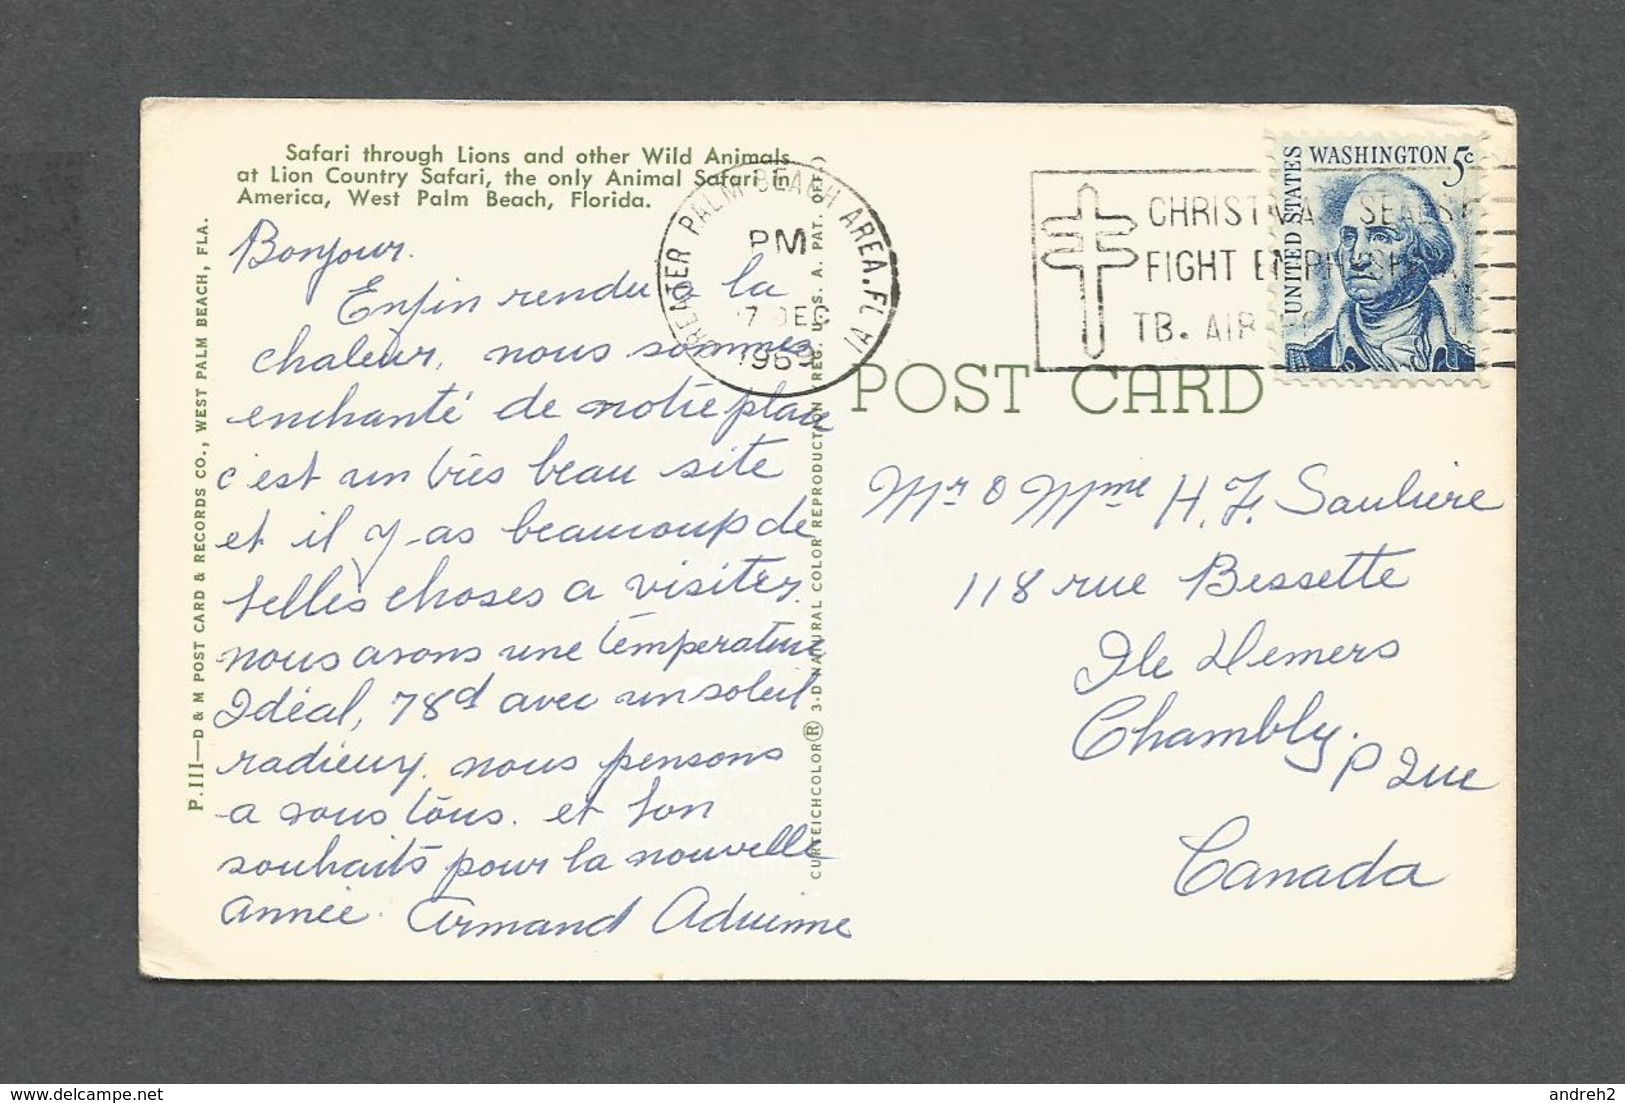 Safari through Lions and other Wild Animals
at Lion Country Safari, the only Animal Safari in
America, West Palm Beach, Florida.
Bonjour.
Enfin rendu a la
chaleur, nous sommes
enchanté de notre place
c'est un très beau site
et il y-as beaucoup de
belles choses a visiter.
nous avons une température
Idéal, 78d avec un soleil
radieux. nous pensons
a vous tous. et bon
souhaits pour la nouvelle
année. Armand Adrienne
P.111—D & M POST CARD & RECORDS CO., WEST PALM BEACH, FLA.
CURTEICHCOLOR® 3-D NATURAL COLOR REPRODUCTION (REG. U.S.A. PAT. OFF.)
GREATER PALM BEACH AREA. FL
PM
DEC
196
CHRISTMAS SEALS
FIGHT EMPHYSEMA
TB. AIR
UNITED STATES
WASHINGTON 5c
POST CARD
Mr & Mme H. F. Saulière
118 rue Bessette
Ile Demers
Chambly.
P Que
Canada
andreh2